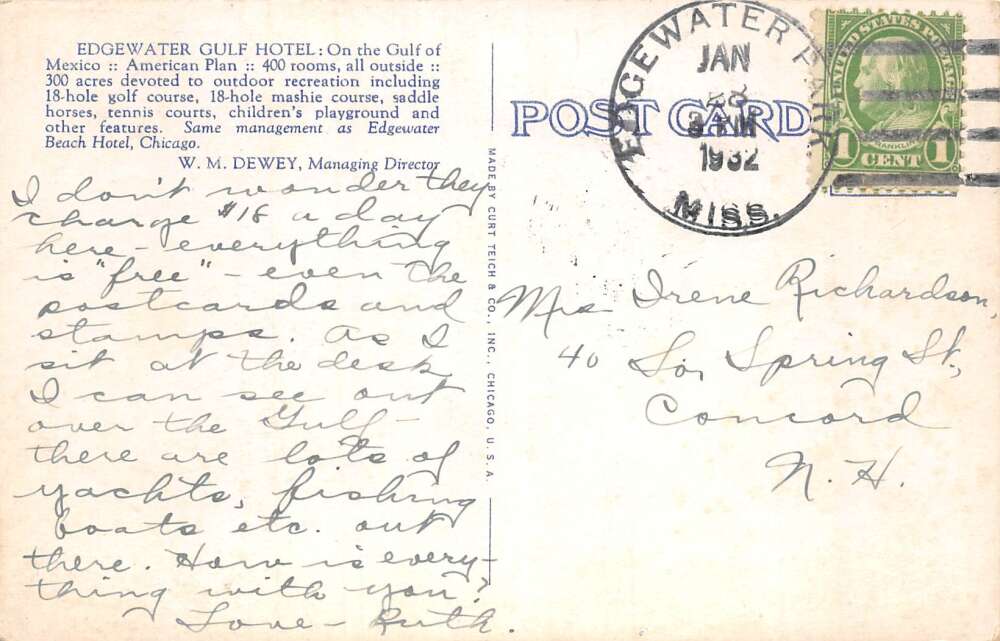 EDGEWATER GULF HOTEL: On the Gulf of
Mexico :: American Plan :: 400 rooms, all outside ::
300 acres devoted to outdoor recreation including
18-hole golf course, 18-hole mashie course, saddle
horses, tennis courts, children's playground and
other features. Same management as Edgewater
Beach Hotel, Chicago.
W. M. DEWEY, Managing Director
I don't wonder they
charge $18 a day
here - everything
is "free" - even the
postcards and
stamps. As I
sit at the desk
I can see out
over the Gulf -
there are lots of
yachts, fishing
boats etc. out
there. How is every-
thing with you?
Love - Ruth.
MADE BY CURT TEICH & CO., INC., CHICAGO, U. S. A.
POST CARD
EDGEWATER PARK
JAN
1932
MISS.
UNITED STATES POSTAGE
FRANKLIN
1 CENT 1
Mrs Irene Richardson,
40 So, Spring St.,
Concord
N. H.